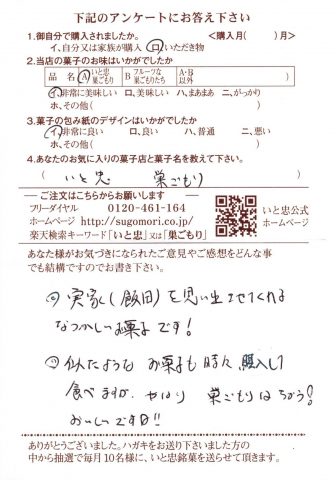 下記のアンケートにお答え下さい
1.御自分で購入されましたか。 <購入月( )月>
イ,自分又は家族が購入 ロ,いただき物
2.当店の菓子のお味はいかがでしたか
品 名 A いと忠 巣ごもり B フルーツな 巣ごもりたち A・B 以外
イ,非常に美味しい ロ,美味しい ハ,まあまあ ニ,がっかり
ホ,その他( )
3.菓子の包み紙のデザインはいかがでしたか
イ,非常に良い ロ,良い ハ,普通 ニ,悪い
ホ,その他( )
4.あなたのお気に入りの菓子店と菓子名を教えて下さい。
( いと忠 巣ごもり )
ご注文はこちらからお願いします
フリーダイヤル 0120-461-164
ホームページ http://sugomori.co.jp/
楽天検索キーワード「いと忠」又は「巣ごもり」
いと忠公式
ホームページ
あなた様がお気づきになられたご意見やご感想をどんな事
でも結構ですのでお書き下さい。
実家(飯田)を思い出させてくれる
なつかしいお菓子です!
似たような お菓子も時々 購入して
食べますが、やはり 巣ごもりはちがう!
おいしいです!!
ありがとうございました。ハガキをお送り下さいました方の
中から抽選で毎月10名様に、いと忠銘菓を送らせて頂きます。